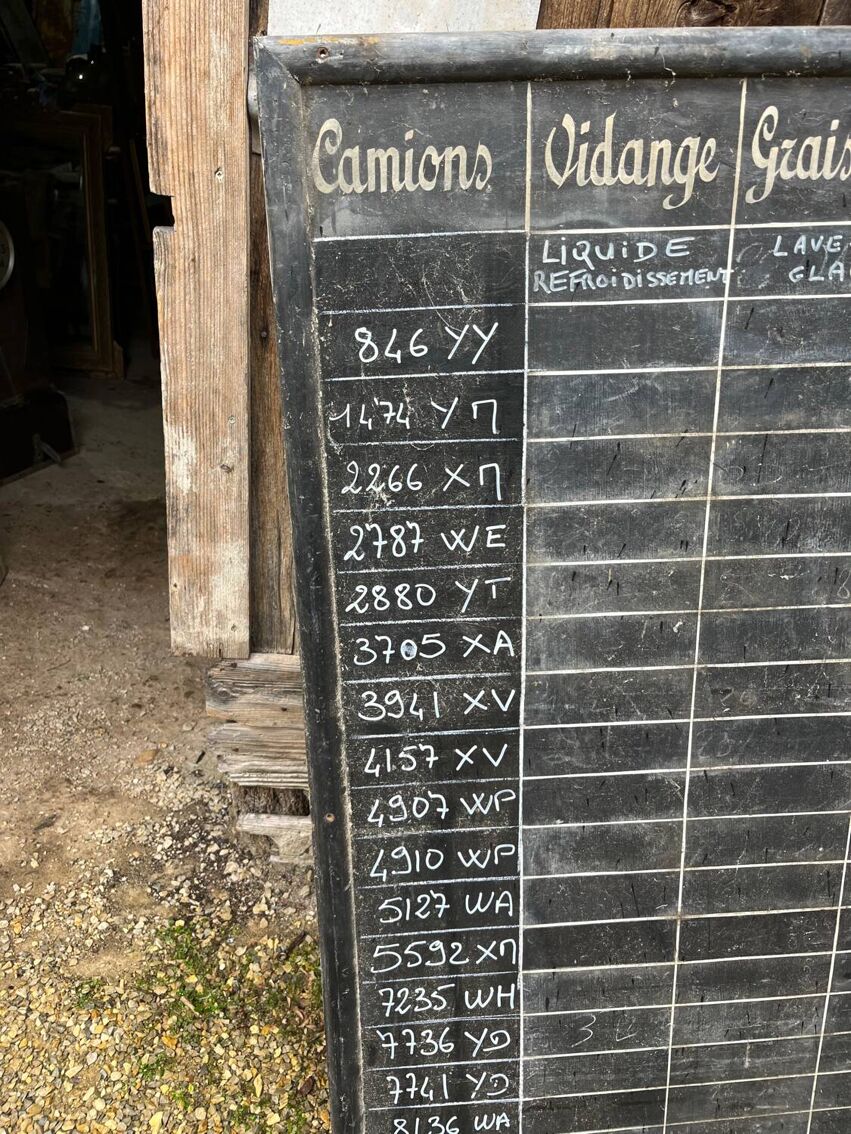 Camions Vidange Grais
LIQUIDE LAVE
REFROIDISSEMENT GLA
846 YY
1474 YM
2266 XM
2787 WE
2880 YT
3705 XA
3941 XV
4157 XV
4907 WP
4910 WP
5127 WA
5592 XM
7235 WH
7736 YD 3 L
7741 YD
8136 WA